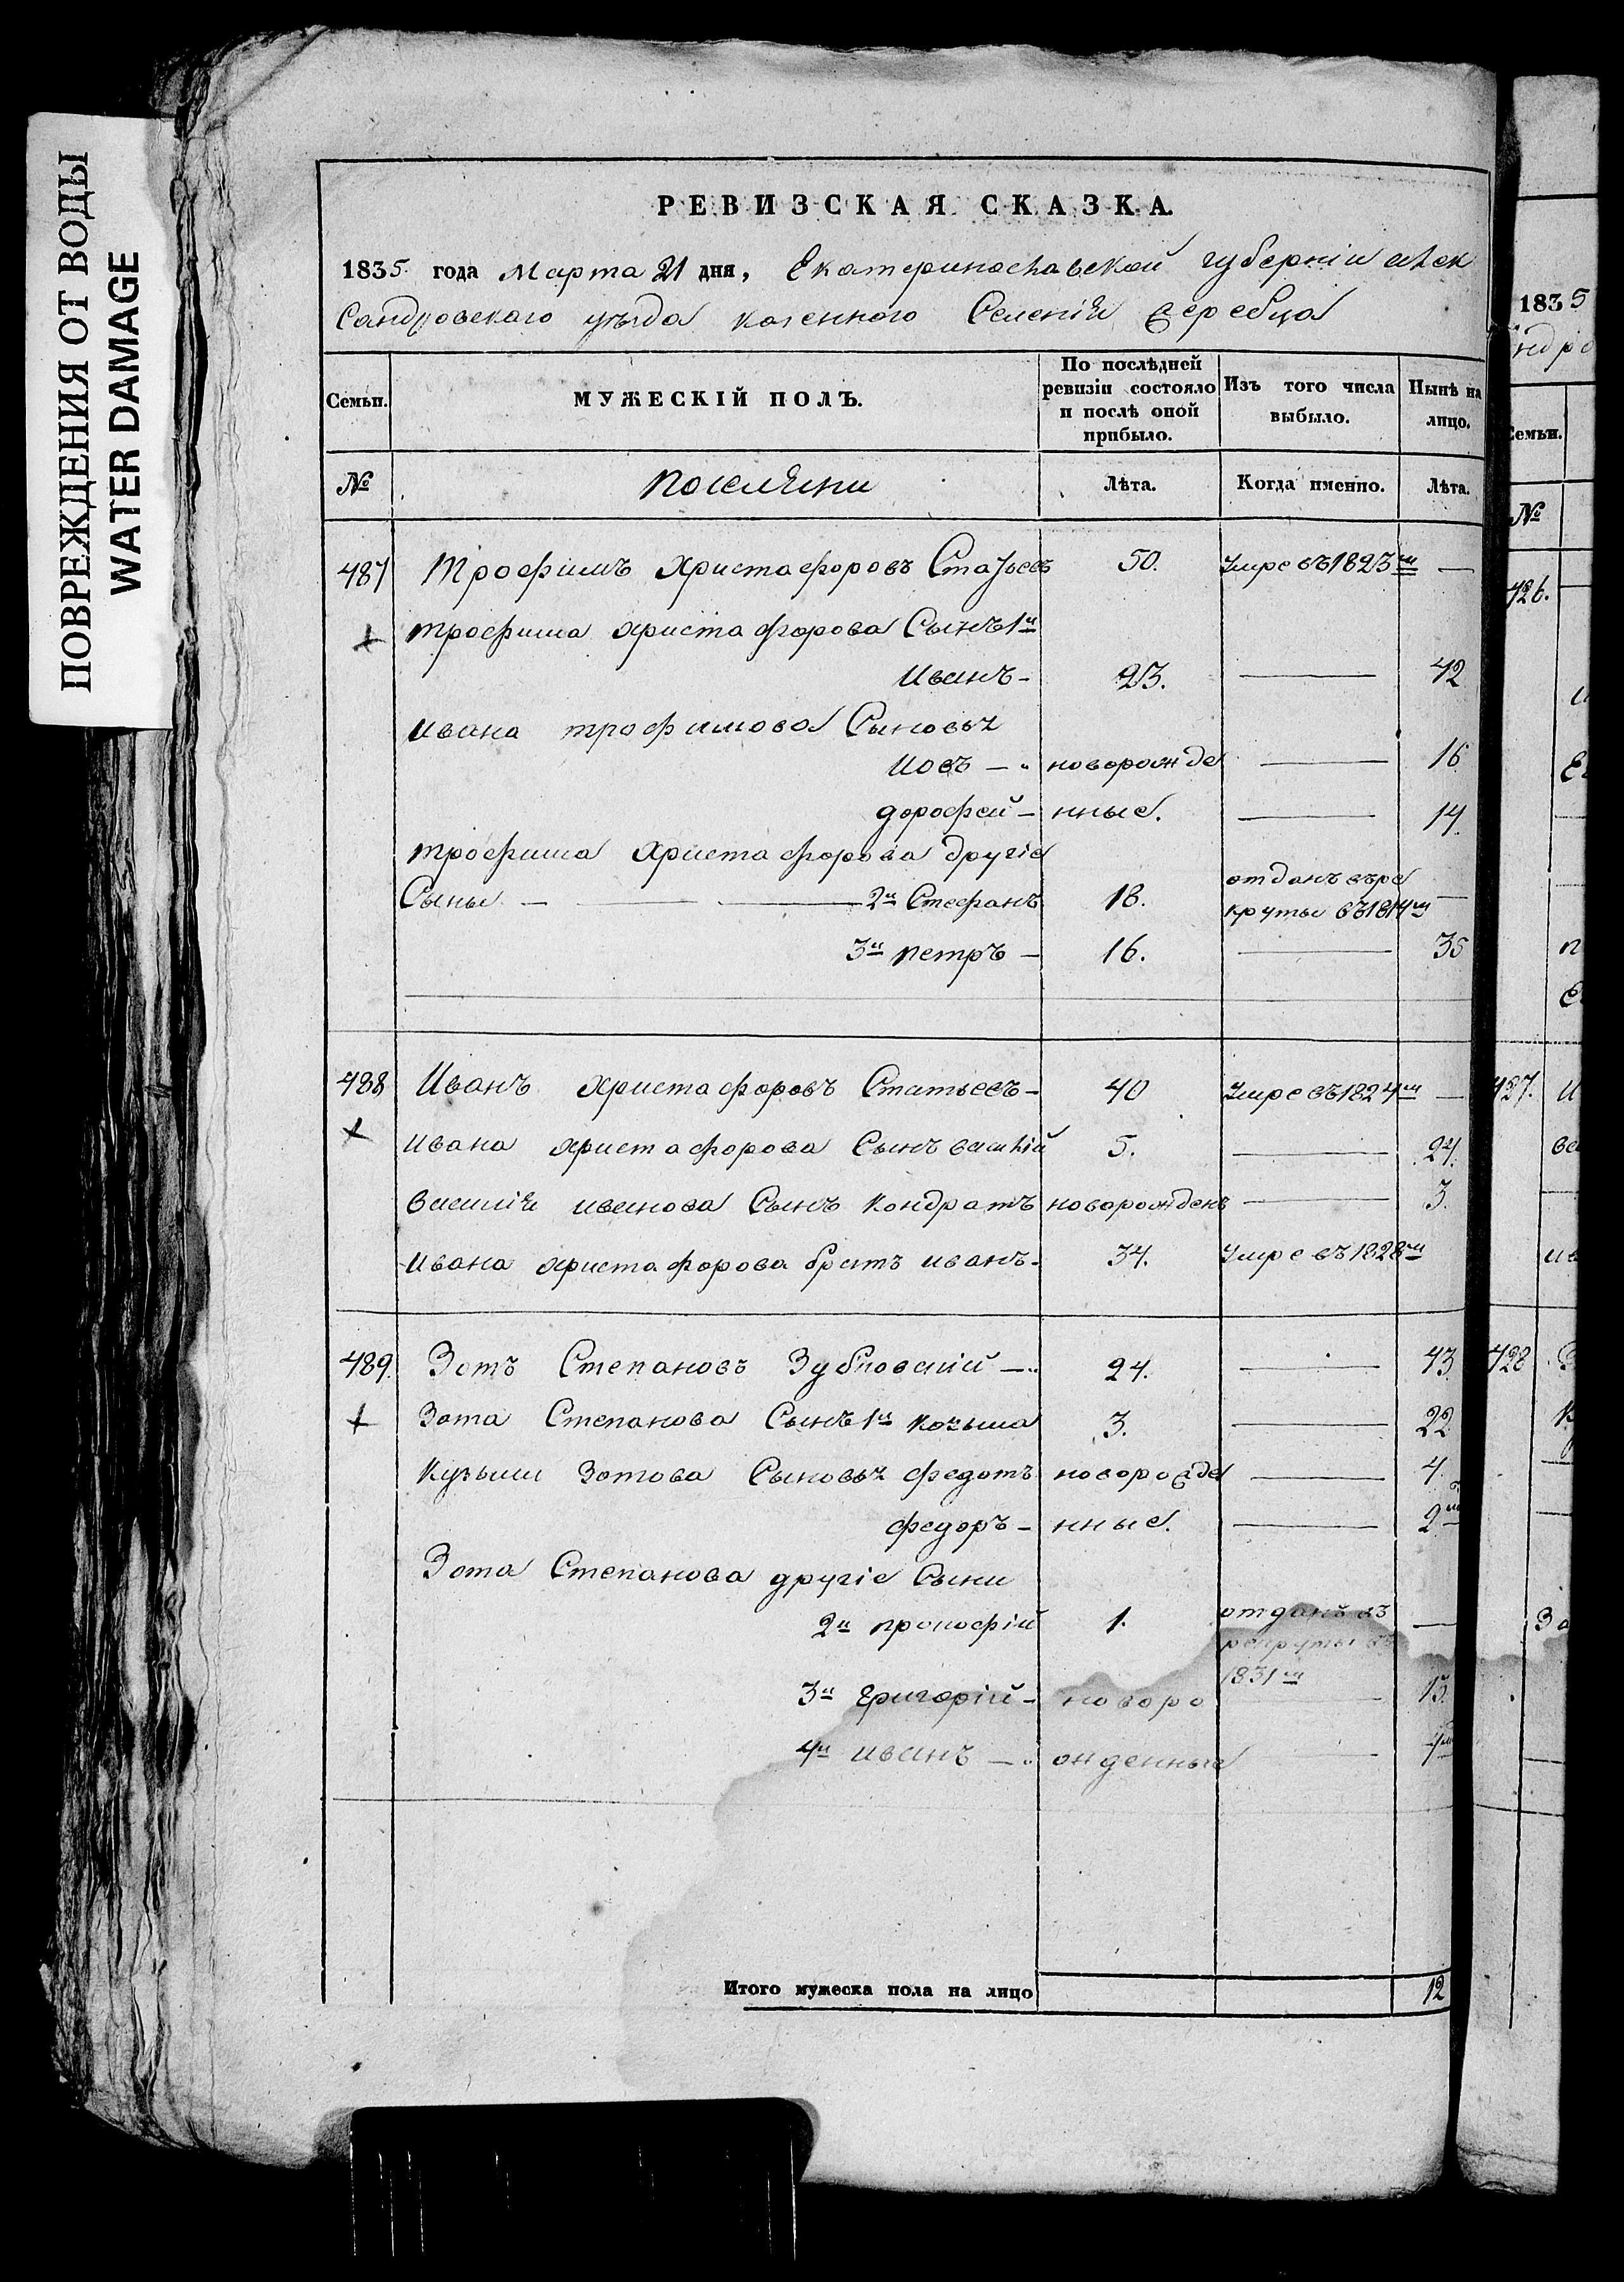 ПОВРЕЖДЕНИЯ ОТ ВОДЫ
WATER DAMAGE
РЕВИЗСКАЯ СКАЗКА.
1835. года Марта 21 дня, Екатеринославской губерніи алек
Сандровскаго уѣзда казенного Селенія жеребца
Семьи. МУЖЕСКІЙ ПОЛЪ. По послѣдней ревизіи состояло и послѣ оной прибыло. Изъ того числа выбыло. Нынѣ на лицо.
№ поселяни Лѣта. Когда именно. Лѣта.
487 Трофимъ Христафоровъ 50. Умре въ 1823м —
трофима христафорова Сынъ 1й
Иванъ - 23. — 42
Ивана трофимова Сыновья
Иовъ — новорожде — 16
дорофей — нные. — 14.
трофима Христафорова другіе
Сыны — — 2й Стефанъ 18. отданъ въре круты въ 1814м —
3й петръ — 16. — 35
488 Иванъ христафоровъ Статьевъ - 40 Умре въ 1824м —
Ивана христафорова Сынъ василій 5. — 24.
Василія иванова Сынъ Кондратъ новорожденъ — 3.
Ивана христафорова братъ иванъ - 34. Умре въ 1828м
489. Зотъ Степановъ — 24. — 43
Зота Степанова Сынъ 1й козьма 3. — 22
Кузьми Зотова Сыновья федотъ новорожде — 4.
федоръ - нные. — 2
Зота Степанова другіе Сыни
2й прокофій 1. отданъ въ рекруты въ 1831м —
3й Григорій - новоро — 13.
4й иванъ — жденные —
Итого мужеска пола на лицо 12
1835
ндро
Семьи.
№
426.
427.
428